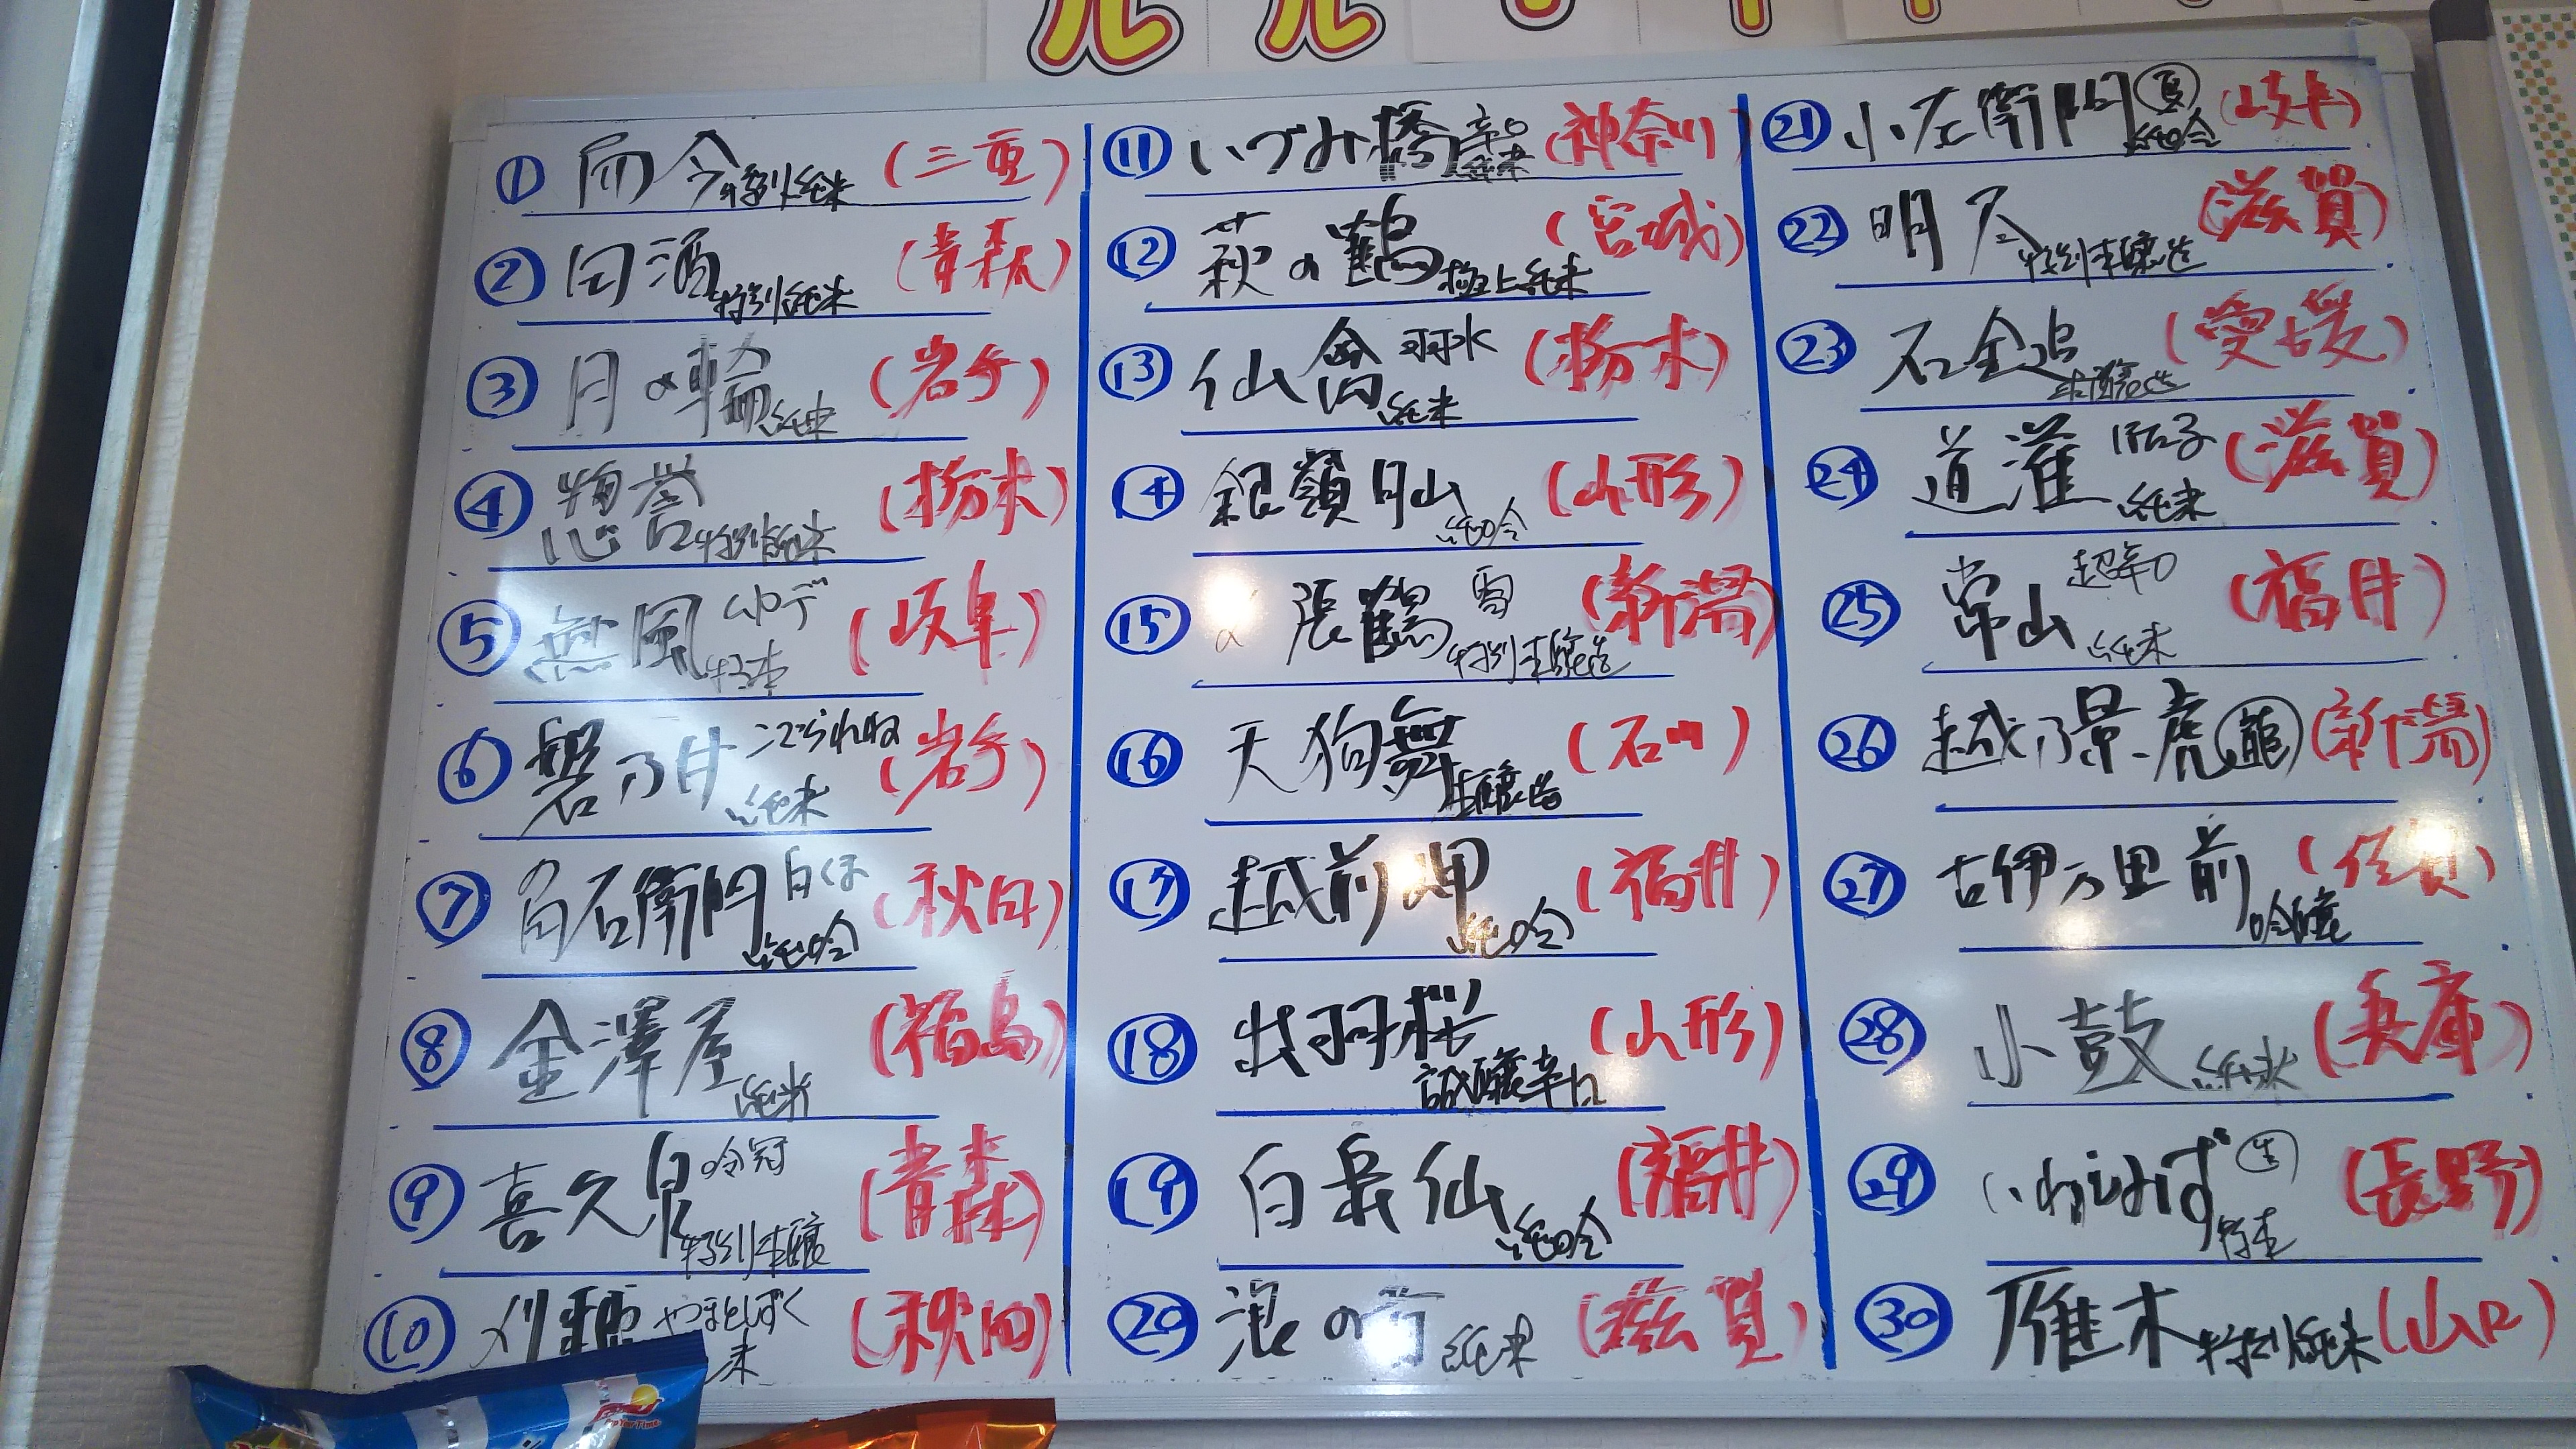 ① 而今 特別純米 (三重)
② 田酒 特別純米 (青森)
③ 月の輪 純米 (岩手)
④ 惣誉 特別純米 (栃木)
⑤ 無風 (岐阜)
⑥ 磐乃井 こでられね 純米 (岩手)
⑦ 角右衛門 純吟 (秋田)
⑧ 金澤屋 純米 (福島)
⑨ 喜久泉 吟冠 特別本醸 (青森)
⑩ 刈穂 やまとしずく 米 (秋田)
⑪ いづみ橋 辛口 純米 (神奈川)
⑫ 萩の鶴 極上純米 (宮城)
⑬ 仙禽 純米 (栃木)
⑭ 銀嶺月山 純吟 (山形)
⑮ 〆張鶴 雪 特別本醸造 (新潟)
⑯ 天狗舞 本醸造 (石川)
⑰ 越前岬 純吟 (福井)
⑱ 出羽桜 誠醸辛口 (山形)
⑲ 白岳仙 純吟 (福井)
⑳ 浪の音 純米 (滋賀)
㉑ 小左衛門 夏 純吟 (岐阜)
㉒ 明尽 特別本醸造 (滋賀)
㉓ 石鎚 本醸造 (愛媛)
㉔ 道灌 純米 (滋賀)
㉕ 常山 超辛口 純米 (福井)
㉖ 越乃景虎 龍 (新潟)
㉗ 古伊万里 前 吟醸 (佐賀)
㉘ 小鼓 純米 (兵庫)
㉙ いわしみず 生 特本 (長野)
㉚ 雁木 特別純米 (山口)